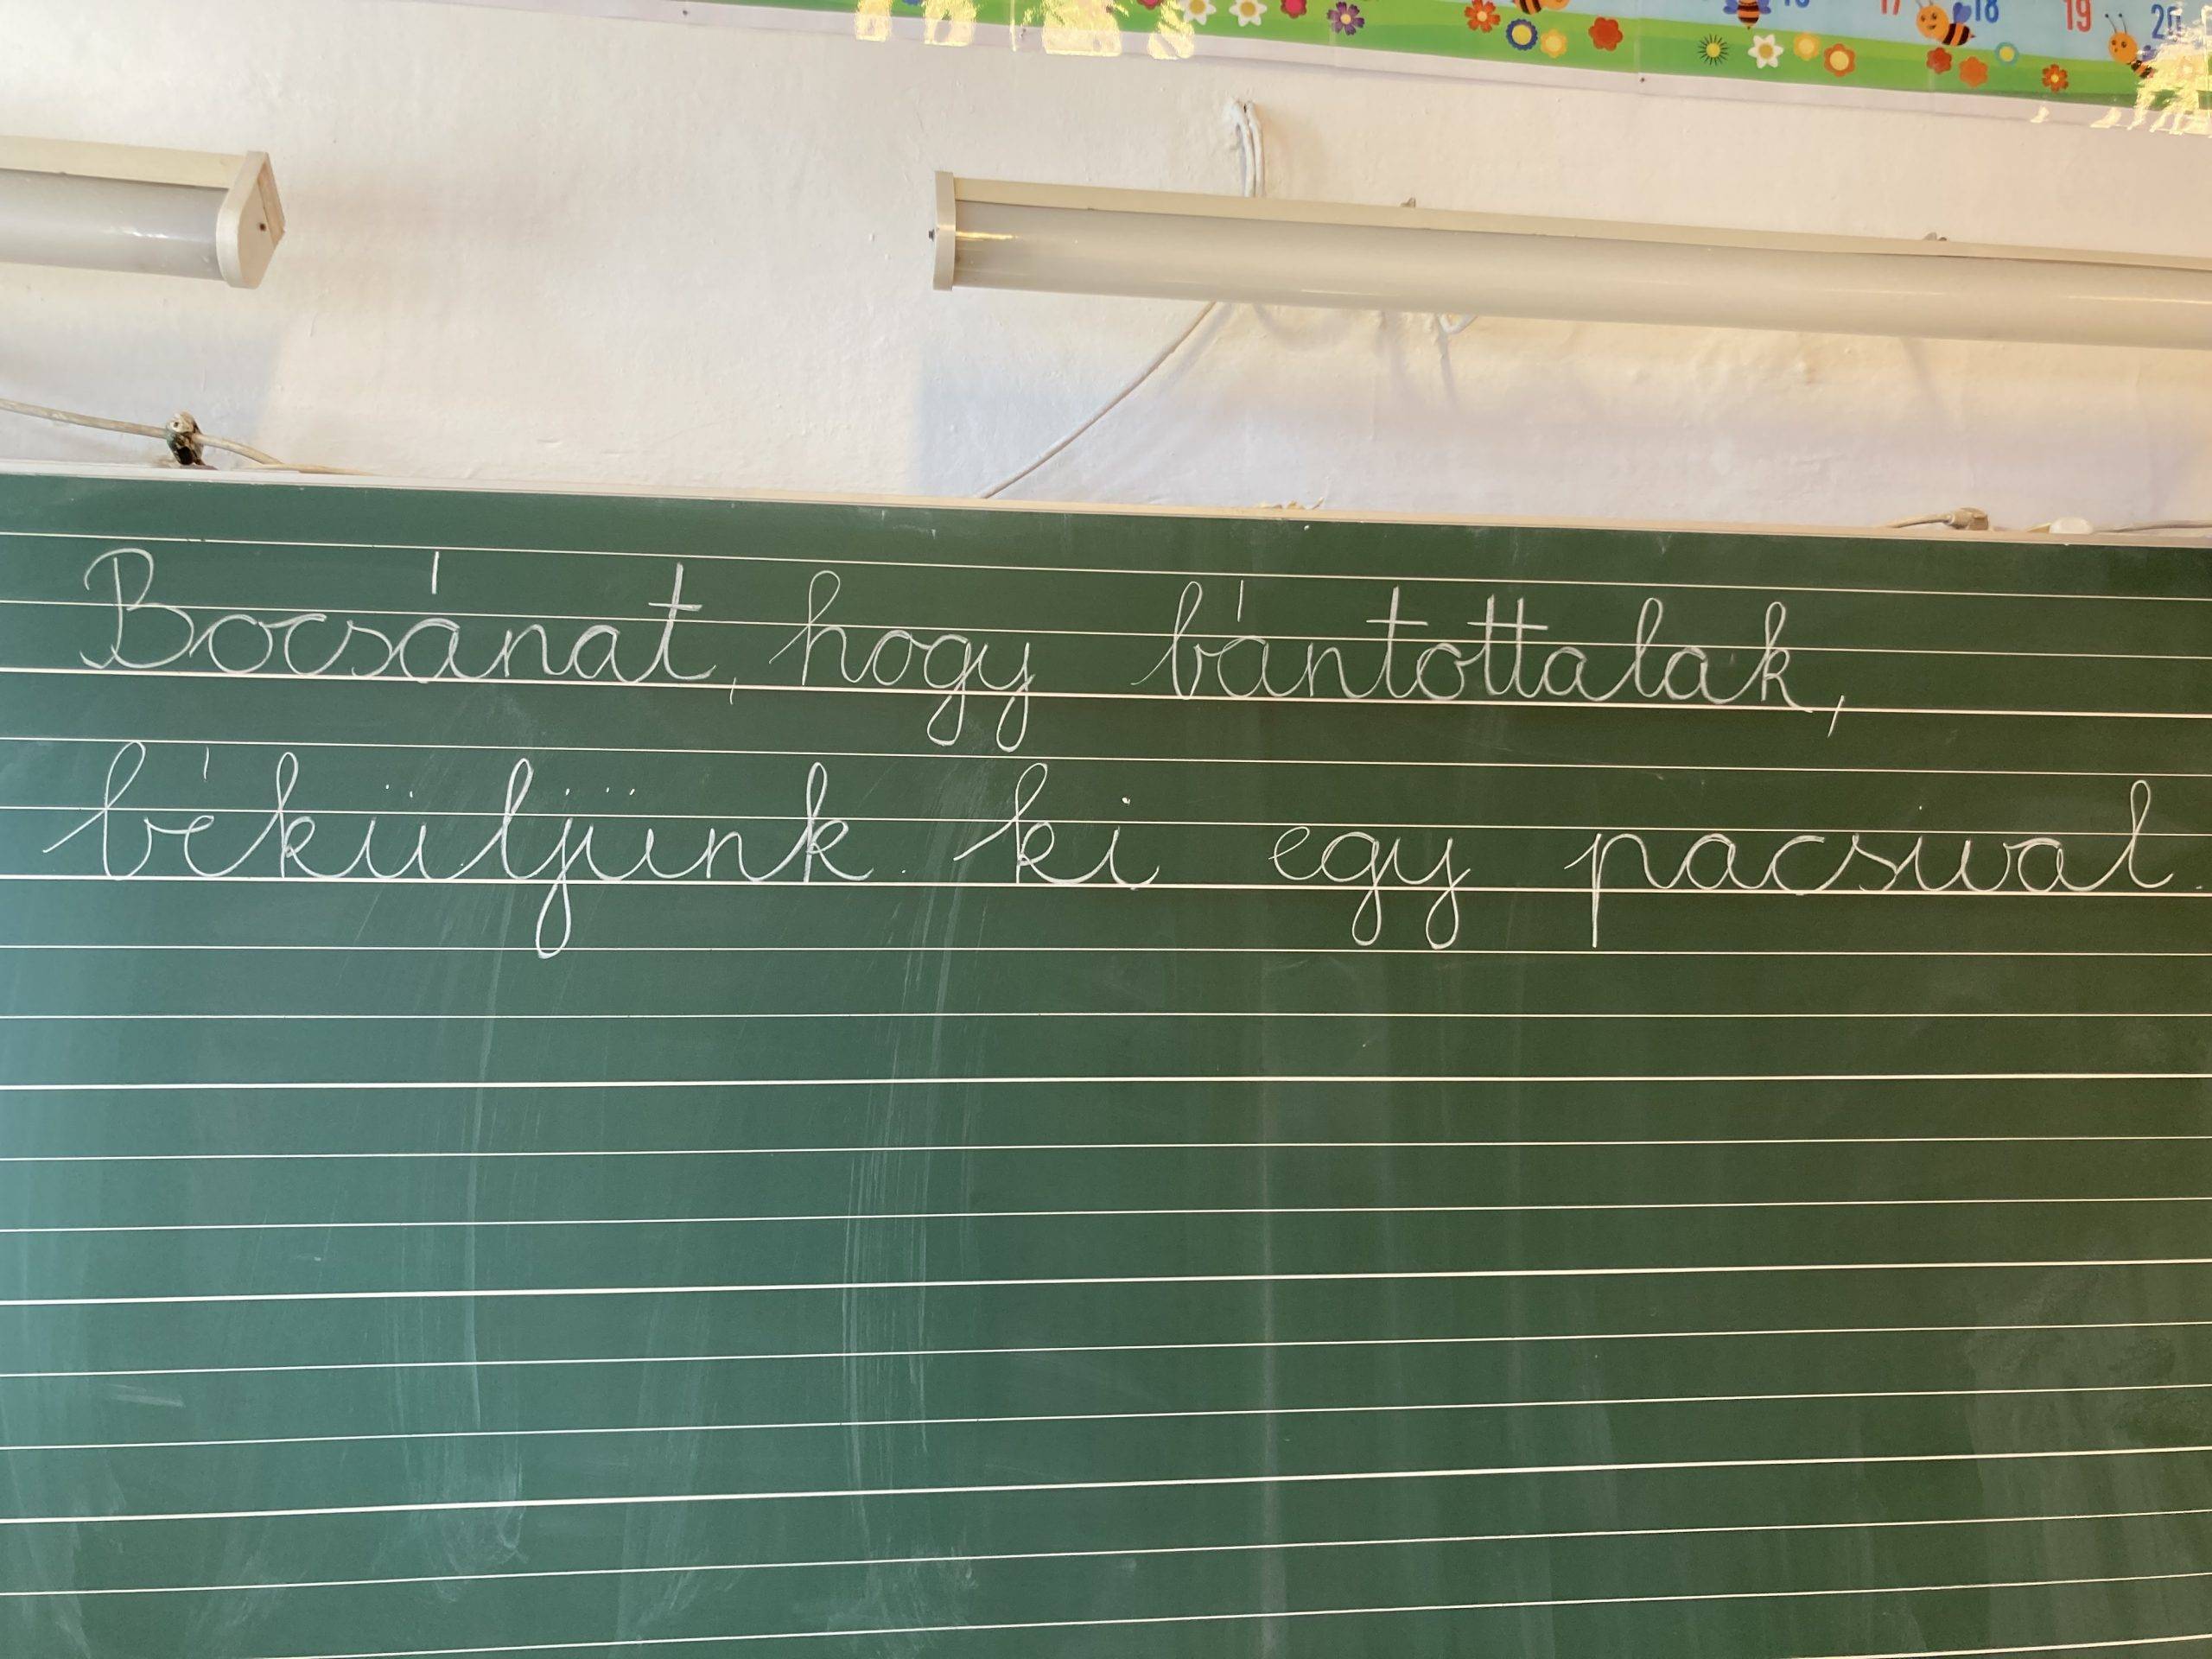 17 18 19 20
Bocsánat, hogy bántottalak,
béküljünk ki egy pacsival.